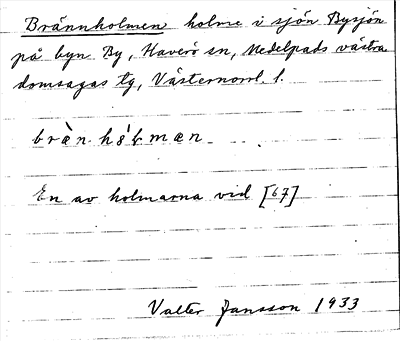 Brännholmen holme i sjön Bysjön
på byn By, Haverö sn, Medelpads västra
domsagas tg, Västernorrl. l.
brànhólmen
En av holmarna vid [67]
Valter Jansson 1933